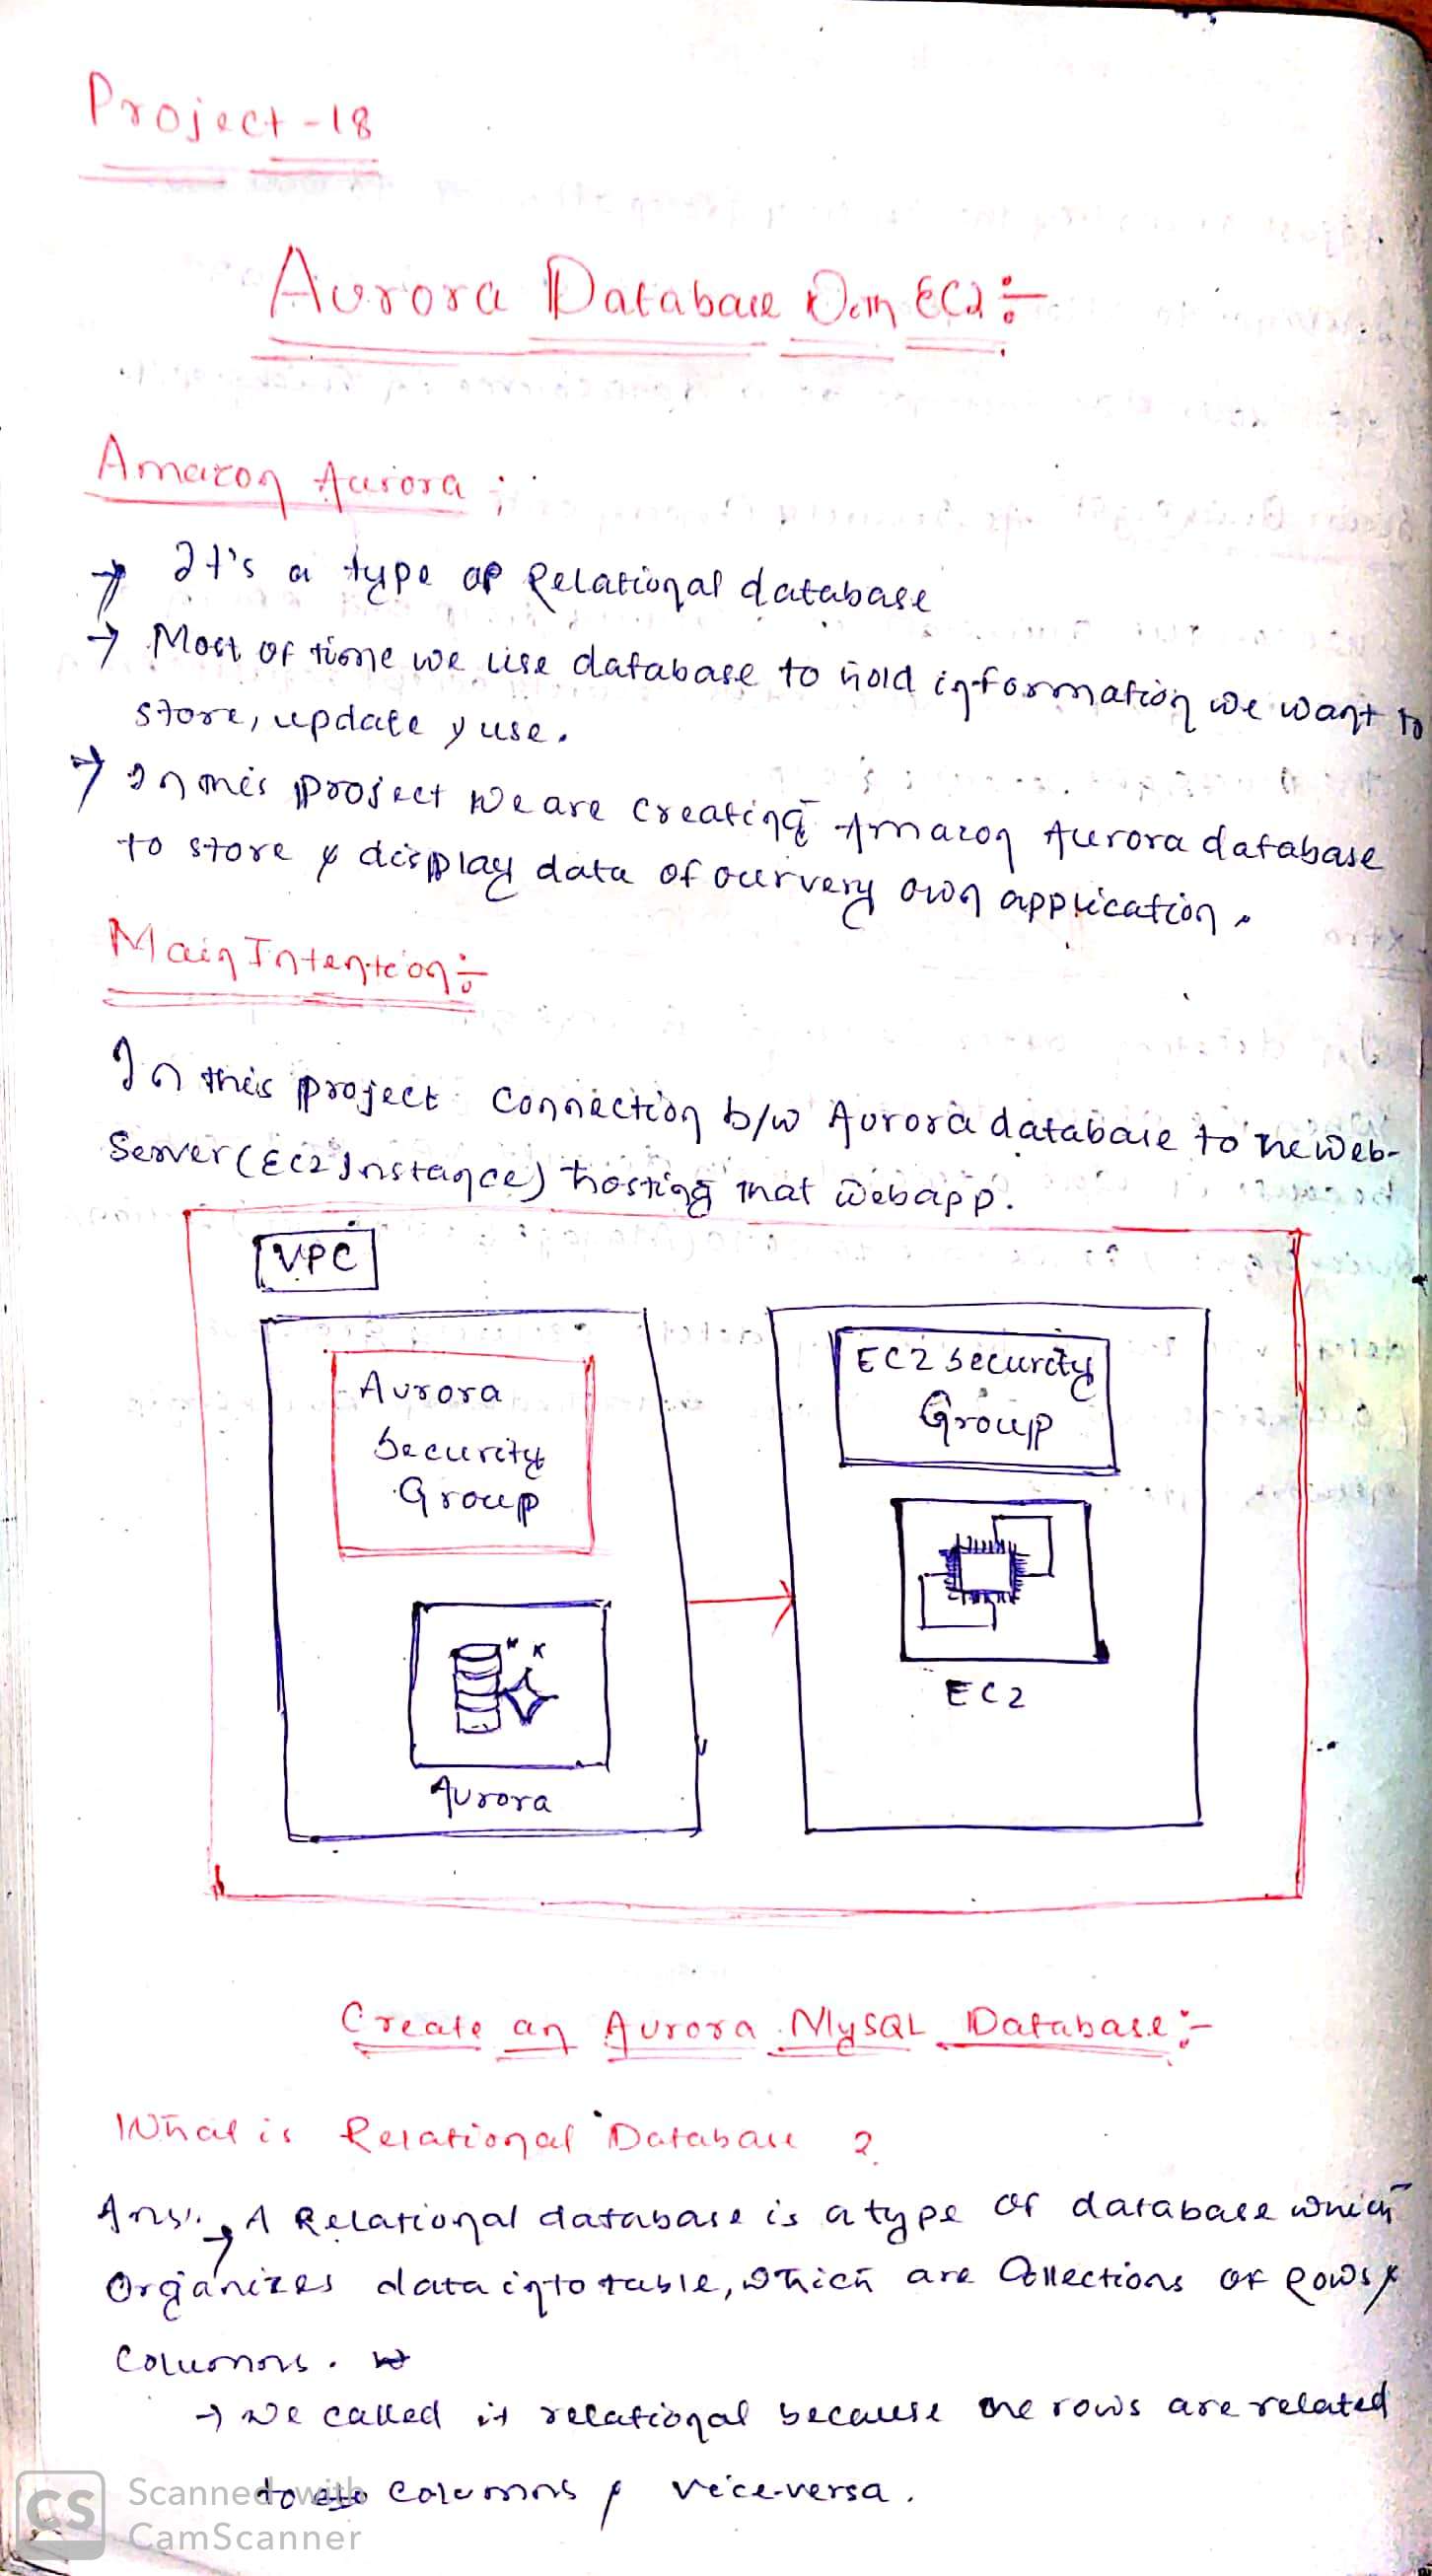 Project-18
Aurora Database With EC2:-
Amazon Aurora:
→ It's a type of Relational database
→ Most of time we use database to hold information we want to
store, update & use.
→ In this project we are creating Amazon Aurora database
to store & display data of our very own application.
Main Intention:-
In this project connection b/w Aurora database to the Web-
Server (EC2 Instance) hosting that webapp.
VPC
Aurora
Security
Group
EC2 Security
Group
EC2
Aurora
Create an Aurora MySQL Database:-
What is Relational Database ?
Ans:→ A Relational database is a type of database which
Organizes data into table, which are Collections of Rows &
Columns.
→ We called it relational because the rows are related
to columns & vice-versa.
CS
Scanned with
CamScanner